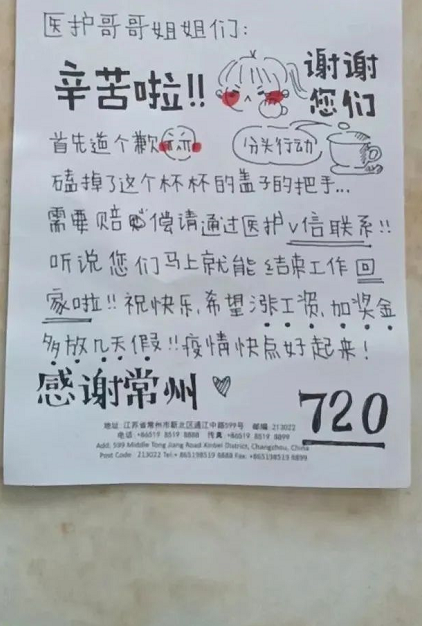 医护哥哥姐姐们:
辛苦啦!! 谢谢您们
首先道个歉
分头行动
磕掉了这个杯杯的盖子的把手...
需要赔偿请通过医护v信联系!!
听说您们马上就能结束工作回
家啦!! 祝快乐,希望涨工资,加奖金
多放几天假!!疫情快点好起来!
感谢常州 720
地址: 江苏省常州市新北区通江中路599号 邮编: 213022
电话: +86519 8519 8888 传真: +86519 8519 8899
Add: 599 Middle Tong Jiang Road Xinbei District, Changzhou, China
Post Code: 213022 Tel:+ 865198519 8888 Fax: +865198519 8899